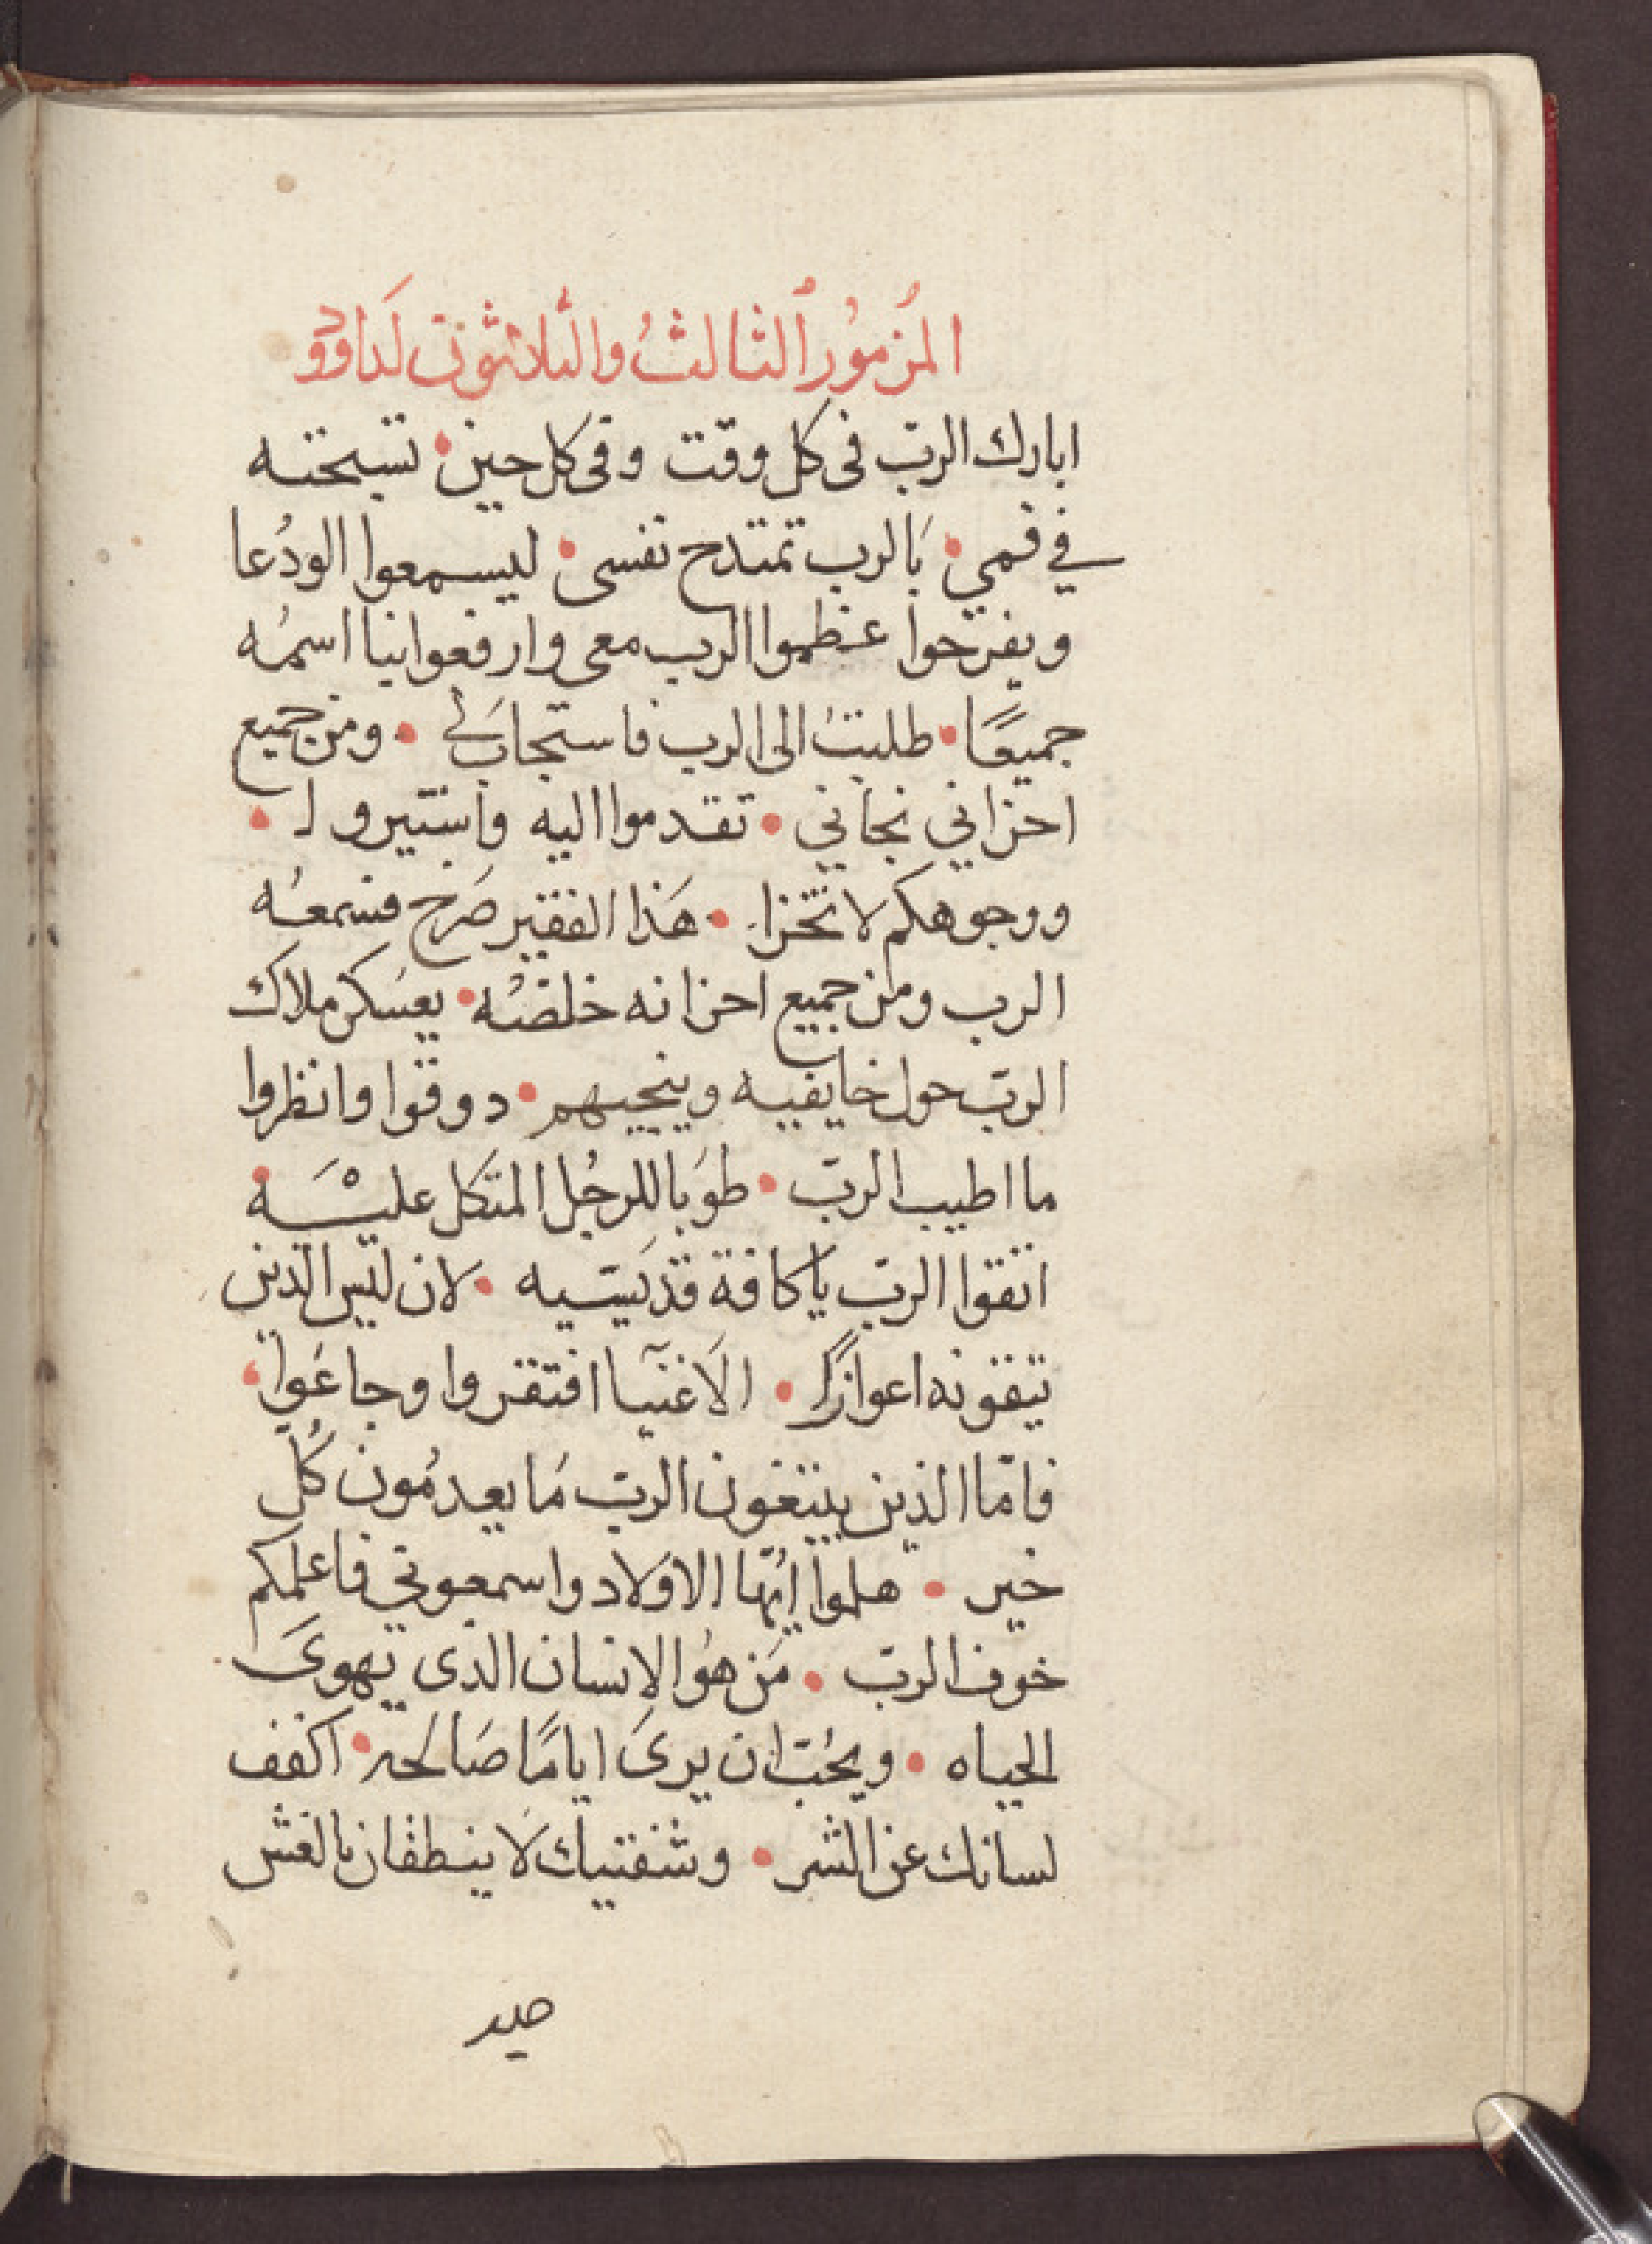 المزمور الثالث والثلاثون لداوود
ابارك الربّ فى كل وقت وفى كل حين • تسبحته
في فمي • بَالرب تمتدح نفسى • ليسمعوا الودُعا
ويفرحوا عظموا الرب معى وارفعوا بنا اسمُه
جميعًا • طلبتُ الى الرب فاستجابَ لي • ومن جميع
احزاني نجاني • تقدموا اليه واستيروا •
ووجوهكم لا تخزا • هَذا الفقير صَرح فسمعُه
الرب ومن جميع احزانه خلصُه • يعسَكر ملاك
الربّ حول خايفيه وينجيهم • دوقوا وانظروا
ما اطيب الربّ • طوَبا للرجُل المتكل عليْــه •
اتقوا الربّ يا كافة قدّيسيه • لان ليس الذين
يتقونه اعوازًا • الاغنيا افتقروا وجاعَوا •
فامّا الذين يبتغون الربّ مَا يعدمُون كُل
خير • هلموا ايُّها الاوَلاد واسمعوني فاعلمكم
خوف الربّ • مَن هُوا الانسان الذى يهوىَ
الحياه • ويحُبّ ان يرىَ ايامًا صَالحه • اكفف
لسانك عن الشر • وشفتيك لا ينطقان بالغش
حيد